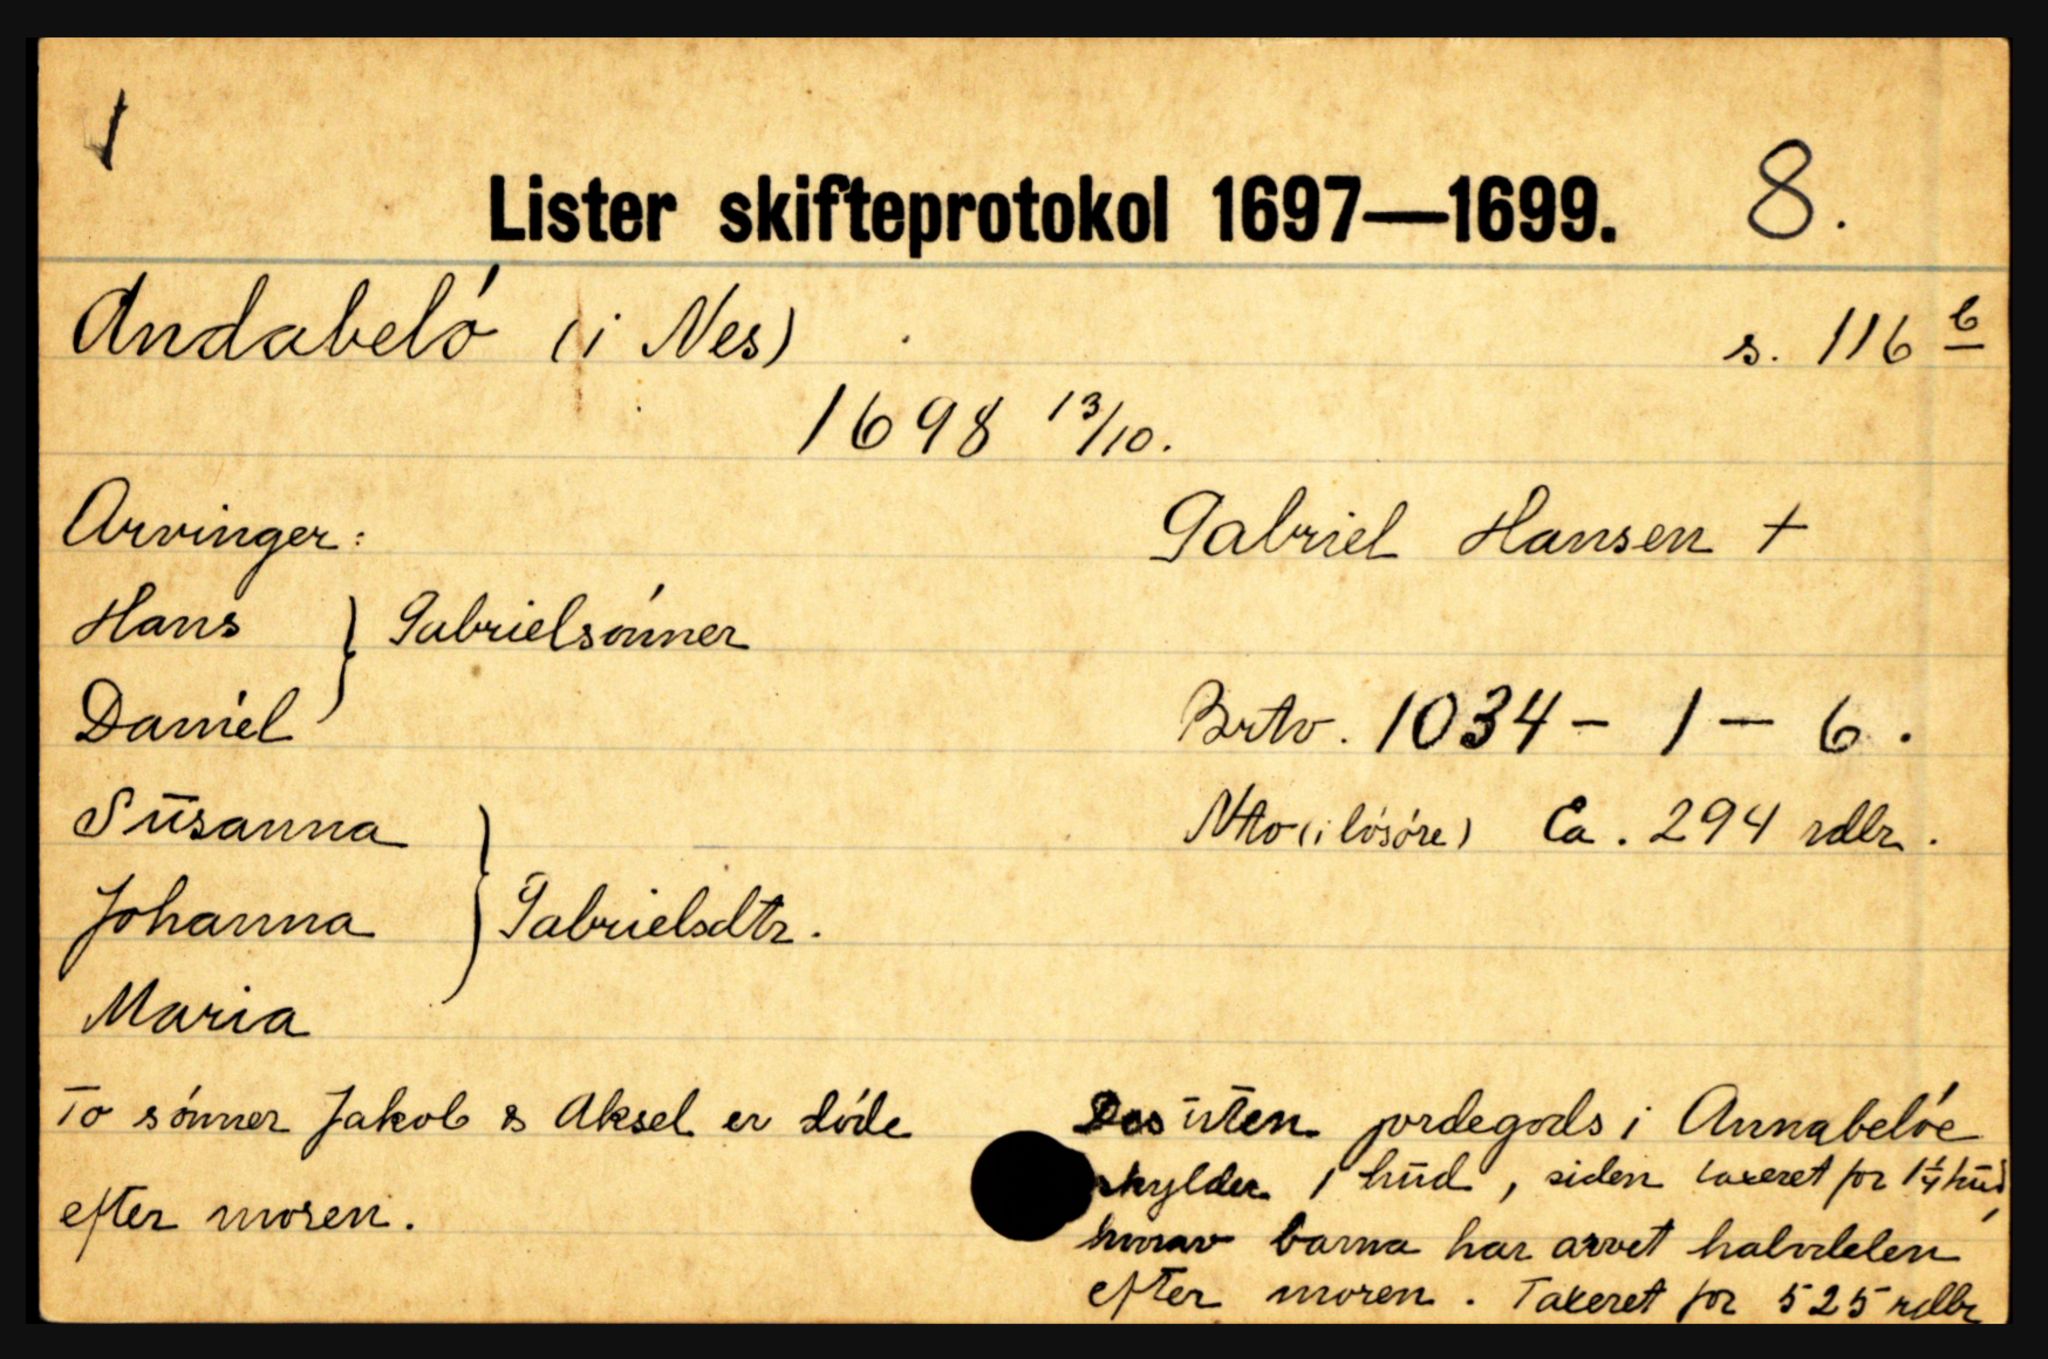 Lister skifteprotokol 1697—1699. 8.
Andabeló (i Nes) s. 116 b
1698 13/10.
Arvinger: Gabriel Hansen +
Hans } Gabrielsónner
Daniel Brtv. 1034 - 1 - 6.
Susanna Ntto (i lósóre) Ca. 294 rdlr.
Johanna } Gabrielsdtr.
Maria
To sónner Jakob & Aksel er dóde
efter moren.
Des uten jordegods i Annabelóe
skylder 1 hud, siden taxeret for 1 1/4 hud,
hvorav barna har arvet halvdelen
efter moren. Taxeret for 525 rdlr